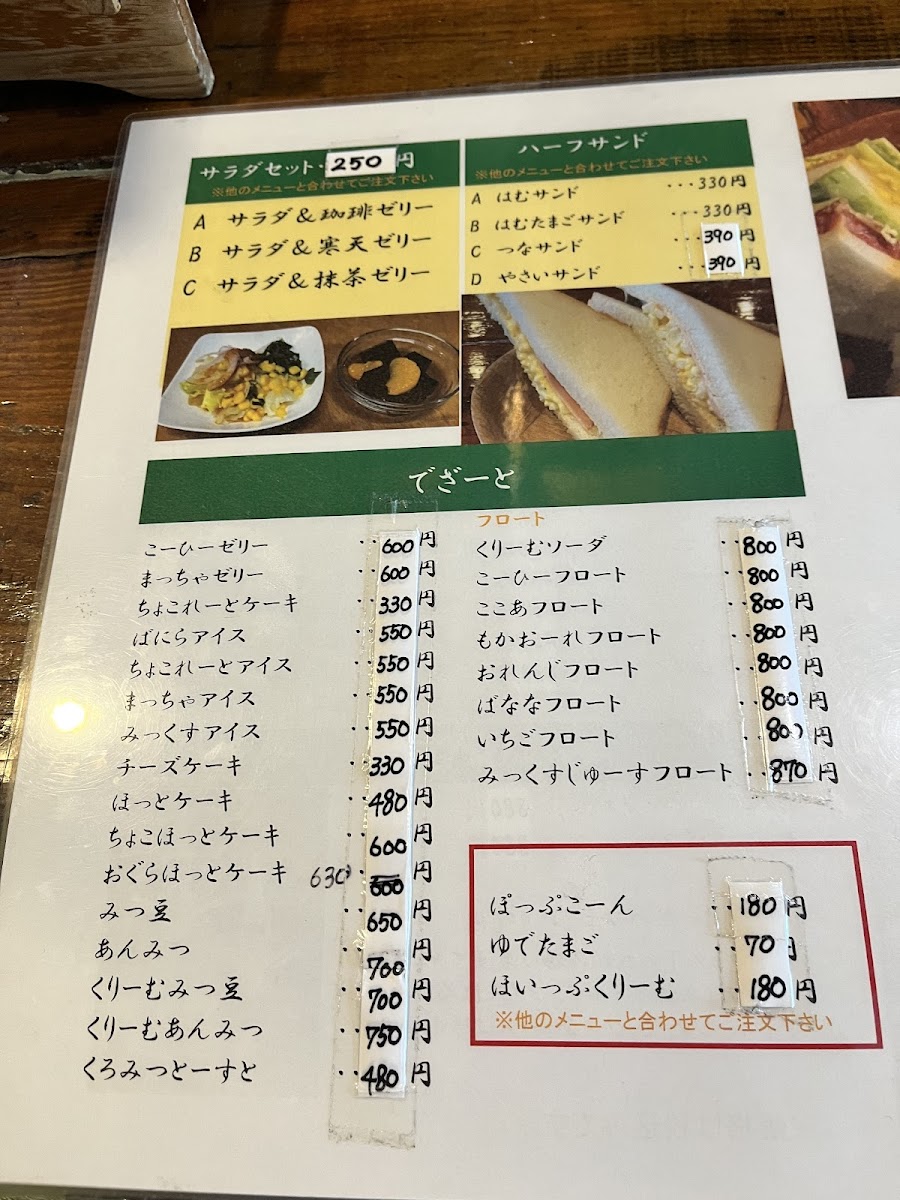 サラダセット・250円
※他のメニューと合わせてご注文下さい
A サラダ&珈琲ゼリー
B サラダ&寒天ゼリー
C サラダ&抹茶ゼリー
ハーフサンド
※他のメニューと合わせてご注文下さい
A はむサンド ・・・330円
B はむたまごサンド ・・・330円
C つなサンド ・・・390円
D やさいサンド ・・・390円
でざーと
こーひーゼリー ・・600円
まっちゃゼリー ・・600円
ちょこれーとケーキ ・・330円
ばにらアイス ・・550円
ちょこれーとアイス ・・550円
まっちゃアイス ・・550円
みっくすアイス ・・550円
チーズケーキ ・・330円
ほっとケーキ ・・480円
ちょこほっとケーキ ・・600円
おぐらほっとケーキ 630 ・・600円
みつ豆 ・・650円
あんみつ ・・700円
くりーむみつ豆 ・・700円
くりーむあんみつ ・・750円
くろみつとーすと ・・480円
フロート
くりーむソーダ ・・800円
こーひーフロート ・・800円
ここあフロート ・・800円
もかおーれフロート ・・800円
おれんじフロート ・・800円
ばななフロート ・・800円
いちごフロート ・・800円
みっくすじゅーすフロート ・・870円
ぽっぷこーん ・・180円
ゆでたまご ・・70円
ほいっぷくりーむ ・・180円
※他のメニューと合わせてご注文下さい